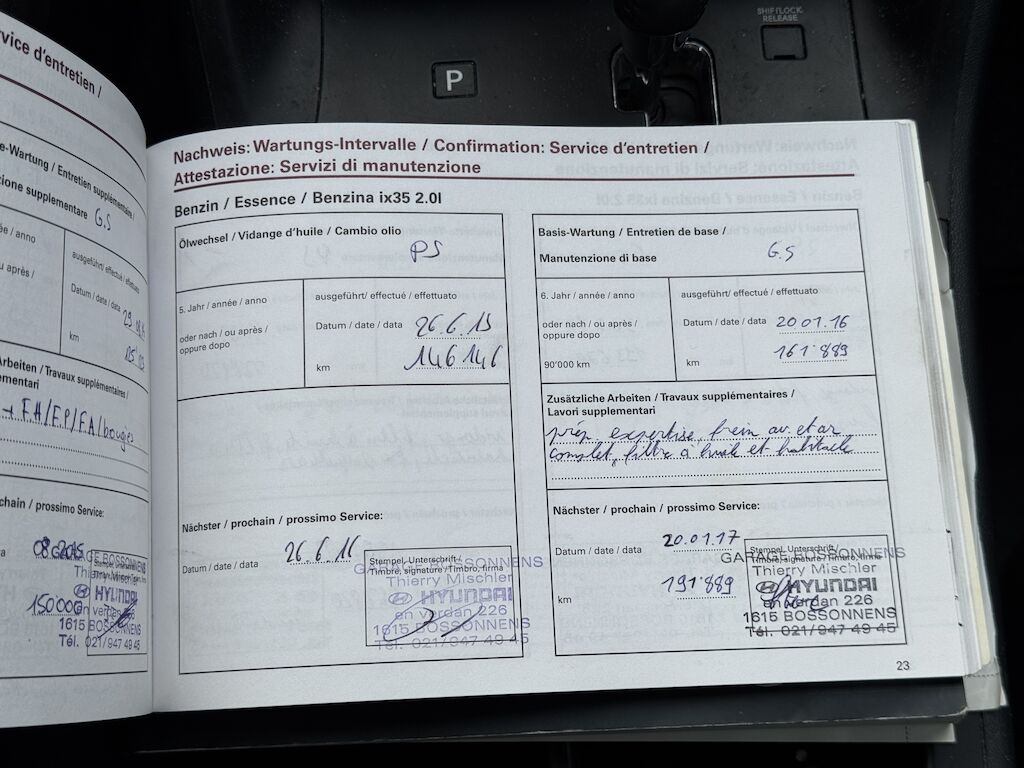 SHIFTLOCK
RELEASE
P
rvice d'entretien /
e-Wartung / Entretien supplémentaire /
zione supplementare G.S
ée / anno
ou après /
ausgeführt/ effectué / effettuato
Datum / date / data
km
Arbeiten / Travaux supplémentaires /
ementari
→ F.H/F.P/F.A/bougies
chain / prossimo Service:
08.2015
150'000
GARAGE BOSSONNENS
Stempel, Unterschrift /
Thierry Mischler
HYUNDAI
en verdan 226
1615 BOSSONNENS
Tél. 021/947 49 45
Nachweis: Wartungs-Intervalle / Confirmation: Service d'entretien /
Attestazione: Servizi di manutenzione
Benzin / Essence / Benzina ix35 2.0l
Ölwechsel / Vidange d'huile / Cambio olio
PS
5. Jahr / année / anno
oder nach / ou après /
oppure dopo
ausgeführt/ effectué / effettuato
Datum / date / data 26.6.15
km 146146
Nächster / prochain / prossimo Service:
Datum / date / data 26.6.16
Stempel, Unterschrift /
Timbre, signature / Timbro, firma
GARAGE BOSSONNENS
Thierry Mischler
HYUNDAI
en verdan 226
1615 BOSSONNENS
Tél. 021/947 49 45
Basis-Wartung / Entretien de base /
Manutenzione di base
G.S
6. Jahr / année / anno
oder nach / ou après /
oppure dopo
90'000 km
ausgeführt/ effectué / effettuato
Datum / date / data 20.01.16
km 161'889
Zusätzliche Arbeiten / Travaux supplémentaires /
Lavori supplementari
prép. expertise, frein av. et ar
complet, filtre à huile et habitacle
Nächster / prochain / prossimo Service:
Datum / date / data 20.01.17
km 191'889
Stempel, Unterschrift /
Timbre, signature / Timbro, firma
GARAGE BOSSONNENS
Thierry Mischler
HYUNDAI
en verdan 226
1615 BOSSONNENS
Tél. 021/947 49 45
23